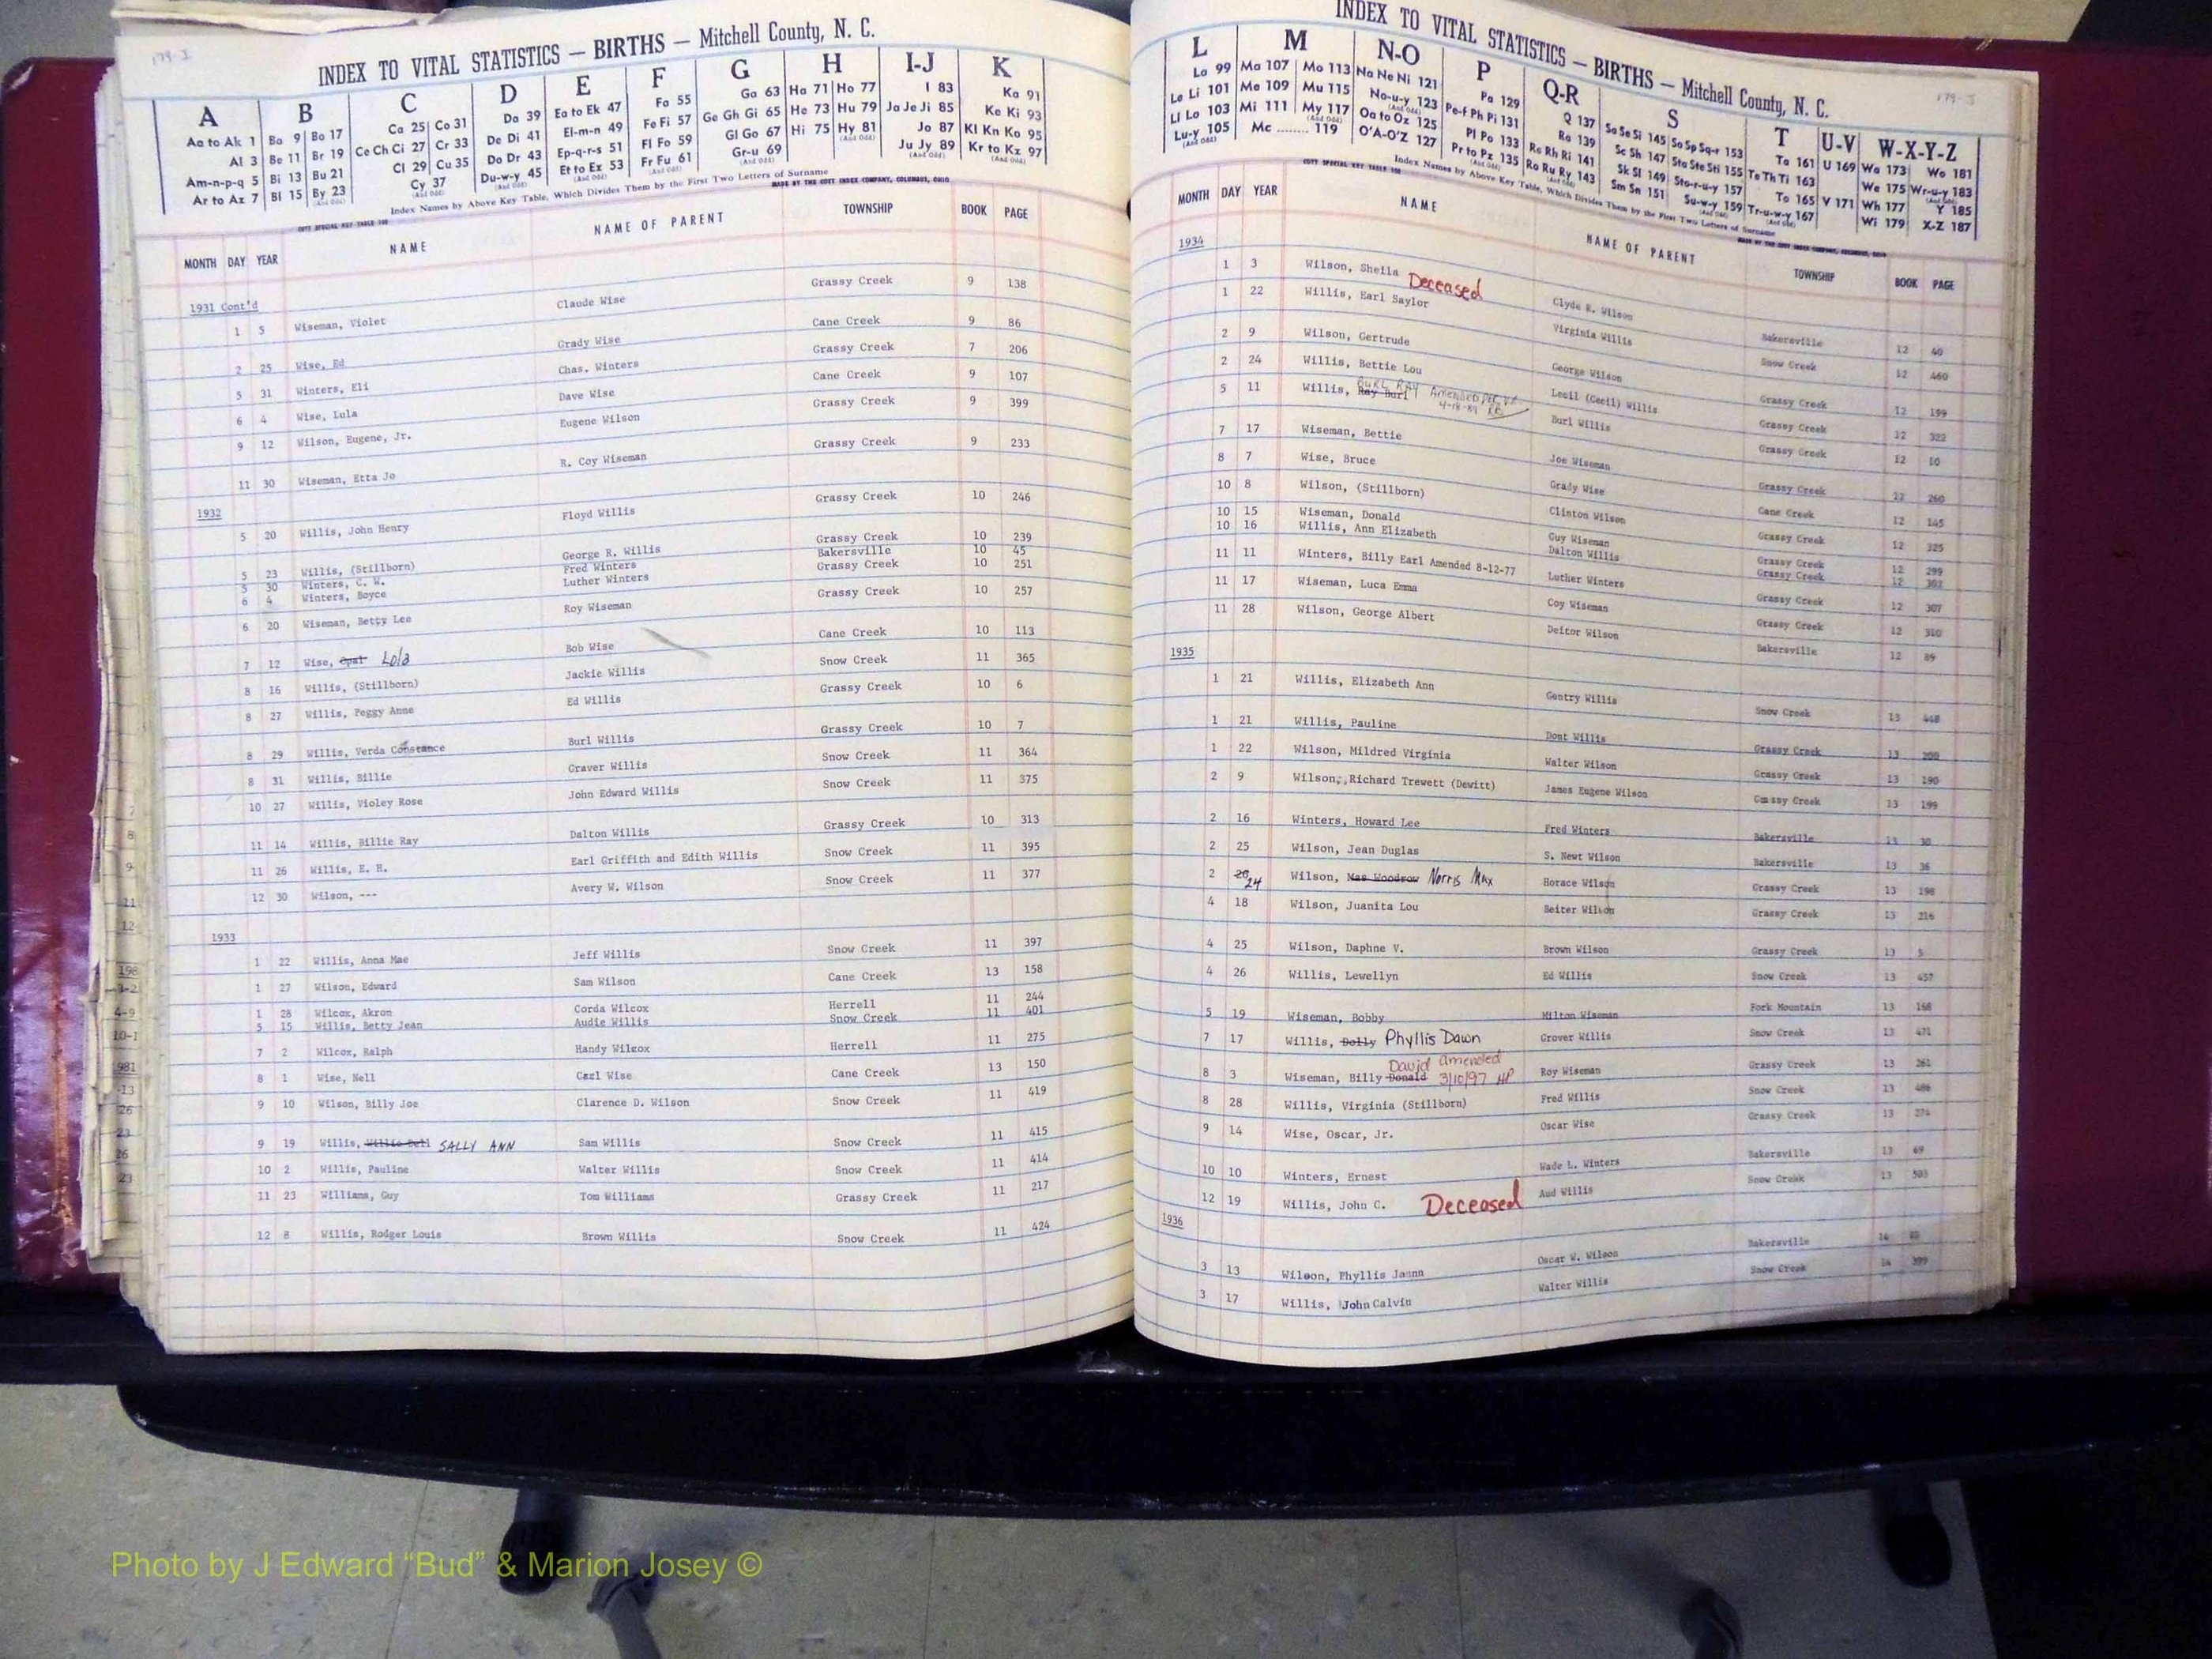 179-I
INDEX TO VITAL STATISTICS — BIRTHS — Mitchell County, N. C.
A B C D E F G H I-J K
Aa to Ak 1 Ba 9 Bo 17 Ca 25 Co 31 Da 39 Ea to Ek 47 Fa 55 Ga 63 Ha 71 Ho 77 I 83 Ka 91
Al 3 Be 11 Br 19 Ce Ch Ci 27 Cr 33 De Di 41 El-m-n 49 Fe Fi 57 Ge Gh Gi 65 He 73 Hu 79 Ja Je Ji 85 Ke Ki 93
Am-n-p-q 5 Bi 13 Bu 21 Cl 29 Cu 35 Do Dr 43 Ep-q-r-s 51 Fl Fo 59 Gl Go 67 Hi 75 Hy 81 Jo 87 Kl Kn Ko 95
Ar to Az 7 Bl 15 By 23 Cy 37 Du-w-y 45 Et to Ez 53 Fr Fu 61 Gr-u 69 Ju Jy 89 Kr to Kz 97
Index Names by Above Key Table, Which Divides Them by the First Two Letters of Surname
COTT SPECIAL KEY TABLE MADE BY THE COTT INDEX COMPANY, COLUMBUS, OHIO
MONTH DAY YEAR NAME NAME OF PARENT TOWNSHIP BOOK PAGE
1931 Cont'd
1 5 Wiseman, Violet Claude Wise Grassy Creek 9 138
2 25 Wise, Ed Grady Wise Cane Creek 9 86
5 31 Winters, Eli Chas. Winters Grassy Creek 7 206
6 4 Wise, Lula Dave Wise Cane Creek 9 107
9 12 Wilson, Eugene, Jr. Eugene Wilson Grassy Creek 9 399
11 30 Wiseman, Etta Jo R. Coy Wiseman Grassy Creek 9 233
1932
5 20 Willis, John Henry Floyd Willis Grassy Creek 10 246
5 23 Willis, (Stillborn) George R. Willis Grassy Creek 10 239
5 30 Winters, C. W. Fred Winters Bakersville 10 45
6 4 Winters, Boyce Luther Winters Grassy Creek 10 251
6 20 Wiseman, Betty Lee Roy Wiseman Grassy Creek 10 257
7 12 Wise, Opal Lola Bob Wise Cane Creek 10 113
8 16 Willis, (Stillborn) Jackie Willis Snow Creek 11 365
8 27 Willis, Peggy Anne Ed Willis Grassy Creek 10 6
8 29 Willis, Verda Constance Burl Willis Grassy Creek 10 7
8 31 Willis, Billie Graver Willis Snow Creek 11 364
10 27 Willis, Violey Rose John Edward Willis Snow Creek 11 375
11 14 Willis, Billie Ray Dalton Willis Grassy Creek 10 313
11 26 Willis, E. H. Earl Griffith and Edith Willis Snow Creek 11 395
12 30 Wilson, --- Avery W. Wilson Snow Creek 11 377
1933
1 22 Willis, Anna Mae Jeff Willis Snow Creek 11 397
1 27 Wilson, Edward Sam Wilson Cane Creek 13 158
1 28 Wilcox, Akron Corda Wilcox Herrell 11 244
5 15 Willis, Betty Jean Audie Willis Snow Creek 11 401
7 2 Wilcox, Ralph Handy Wilcox Herrell 11 275
8 1 Wise, Nell Carl Wise Cane Creek 13 150
9 10 Wilson, Billy Joe Clarence D. Wilson Snow Creek 11 419
9 19 Willis, Willie Bell SALLY ANN Sam Willis Snow Creek 11 415
10 2 Willis, Pauline Walter Willis Snow Creek 11 414
11 23 Williams, Guy Tom Williams Grassy Creek 11 217
12 8 Willis, Rodger Louis Brown Willis Snow Creek 11 424
INDEX TO VITAL STATISTICS — BIRTHS — Mitchell County, N. C.
179-J
L M N-O P Q-R S T U-V W-X-Y-Z
La 99 Ma 107 Mo 113 Na Ne Ni 121 Pa 129 Q 137 Sa Se Si 145 So Sp Sq-r 153 Ta 161 U 169 Wa 173 Wo 181
Le Li 101 Me 109 Mu 115 No-u-y 123 Pe-f Ph Pi 131 Ra 139 Sc Sh 147 Sta Ste Sti 155 Te Th Ti 163 We 175 Wr-u-y 183
Ll Lo 103 Mi 111 My 117 Oa to Oz 125 Pl Po 133 Re Rh Ri 141 Sk Sl 149 Sto-r-u-y 157 To 165 V 171 Wh 177 Y 185
Lu-y 105 Mc ........ 119 O'A-O'Z 127 Pr to Pz 135 Ro Ru Ry 143 Sm Sn 151 Su-w-y 159 Tr-u-w-y 167 Wi 179 X-Z 187
Index Names by Above Key Table, Which Divides Them by the First Two Letters of Surname
MONTH DAY YEAR NAME NAME OF PARENT TOWNSHIP BOOK PAGE
1934
1 3 Wilson, Sheila Clyde R. Wilson Bakersville 12 40
1 22 Willis, Earl Saylor Deceased Virginia Willis Snow Creek 12 460
2 9 Wilson, Gertrude George Wilson Grassy Creek 12 199
2 24 Willis, Bettie Lou Lecil (Cecil) Willis Grassy Creek 12 322
5 11 Willis, Ray Burl BURL RAY Amended Burl Willis Grassy Creek 12 10
7 17 Wiseman, Bettie Joe Wiseman Grassy Creek 12 260
8 7 Wise, Bruce Grady Wise Cane Creek 12 145
10 8 Wilson, (Stillborn) Clinton Wilson Grassy Creek 12 325
10 15 Wiseman, Donald Guy Wiseman Grassy Creek 12 299
10 16 Willis, Ann Elizabeth Dalton Willis Grassy Creek 12
11 11 Winters, Billy Earl Amended 8-12-77 Luther Winters Grassy Creek 12 307
11 17 Wiseman, Luca Emma Coy Wiseman Grassy Creek 12 310
11 28 Wilson, George Albert Deitor Wilson Bakersville 12 89
1935
1 21 Willis, Elizabeth Ann Gentry Willis Snow Creek 13 448
1 21 Willis, Pauline Dont Willis Grassy Creek 13
1 22 Wilson, Mildred Virginia Walter Wilson Grassy Creek 13 190
2 9 Wilson, Richard Trewett (Dewitt) James Eugene Wilson Grassy Creek 13 199
2 16 Winters, Howard Lee Fred Winters Bakersville 13 30
2 25 Wilson, Jean Duglas S. Newt Wilson Bakersville 13 36
2 20 24 Wilson, Mas Woodrow Norris Max Horace Wilson Grassy Creek 13 198
4 18 Wilson, Juanita Lou Seiter Wilson Grassy Creek 13 216
4 25 Wilson, Daphne V. Brown Wilson Grassy Creek 13 5
4 26 Willis, Lewellyn Ed Willis Snow Creek 13 457
5 19 Wiseman, Bobby Milton Wiseman Fork Mountain 13 168
7 17 Willis, Dolly Phyllis Dawn Grover Willis Snow Creek 13 471
8 3 Wiseman, Billy Donald David amended 3/10/97 HP Roy Wiseman Grassy Creek 13 261
8 28 Willis, Virginia (Stillborn) Fred Willis Snow Creek 13 486
9 14 Wise, Oscar, Jr. Oscar Wise Grassy Creek 13 274
10 10 Winters, Ernest Wade L. Winters Bakersville 13 69
12 19 Willis, John C. Deceased Aud Willis Snow Creek 13 503
1936
3 13 Wilson, Phyllis Jaann Oscar W. Wilson Bakersville 14
3 17 Willis, John Calvin Walter Willis Snow Creek 14 399
Photo by J Edward “Bud” & Marion Josey ©